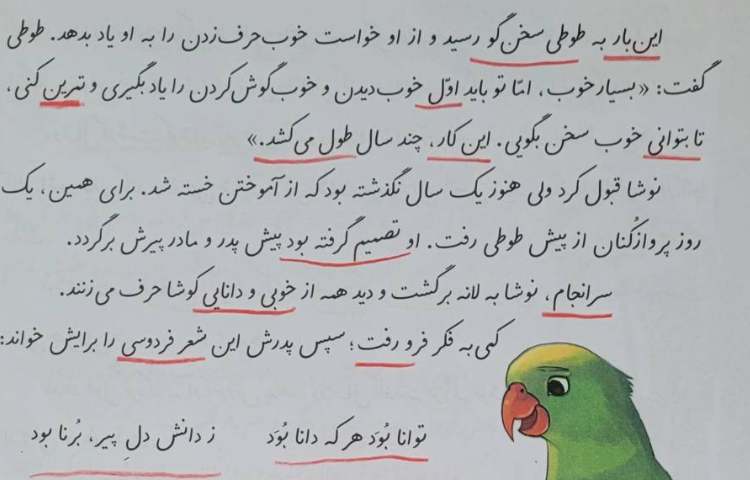 این بار به طوطی سخن‌گو رسید و از او خواست خوب حرف‌زدن را به او یاد بدهد. طوطی
گفت: «بسیار خوب، امّا تو باید اوّل خوب دیدن و خوب گوش کردن را یاد بگیری و تمرین کنی،
تا بتوانی خوب سخن بگویی. این کار، چند سال طول می‌کشد.»
نوشا قبول کرد ولی هنوز یک سال نگذشته بود که از آموختن خسته شد. برای همین، یک
روز پروازکُنان از پیش طوطی رفت. او تصمیم گرفته بود پیش پدر و مادر پیرش برگردد.
سرانجام، نوشا به لانه برگشت و دید همه از خوبی و دانایی کوشا حرف می‌زنند.
کمی به فکر فرو رفت؛ سپس پدرش این شعر فردوسی را برایش خواند:
توانا بُوَد هر که دانا بُوَد ز دانش دلِ پیر، بُرنا بود